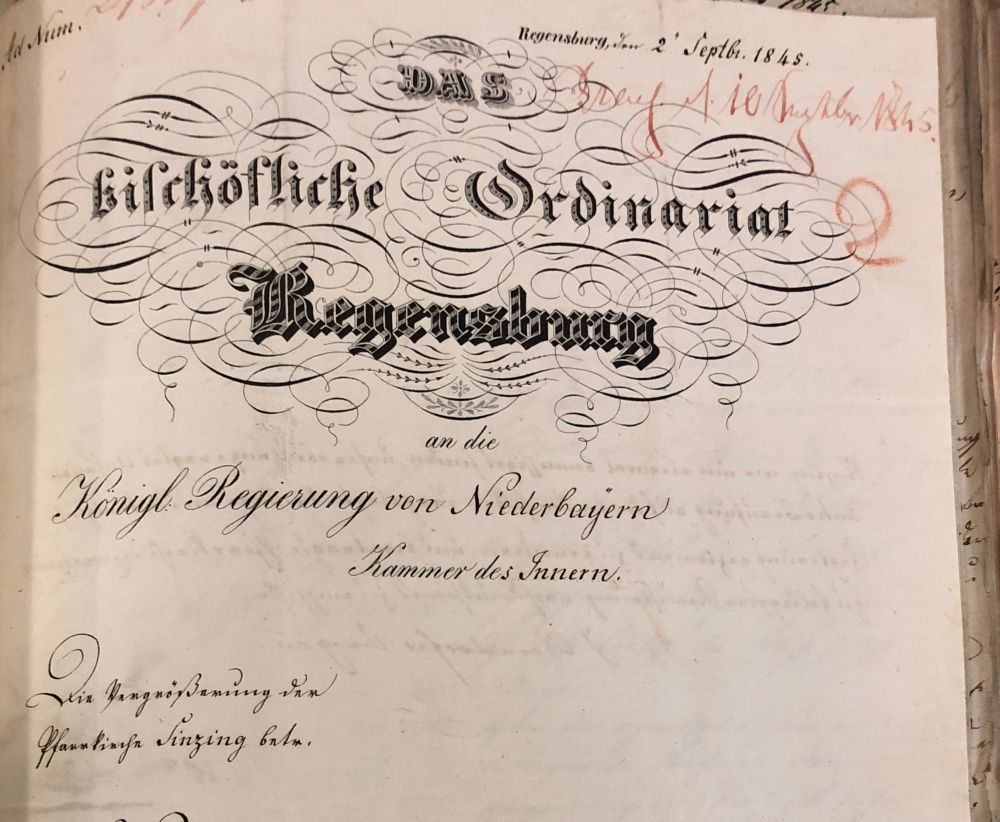 Ad Num.
Regensburg, den 2' Septbr. 1845.
DAS
bischöfliche Ordinariat
Regensburg
an die
Königl: Regierung von Niederbayern
Kammer des Innern.
Die Vergrößerung der
Pfarrkirche Sinzing betr.